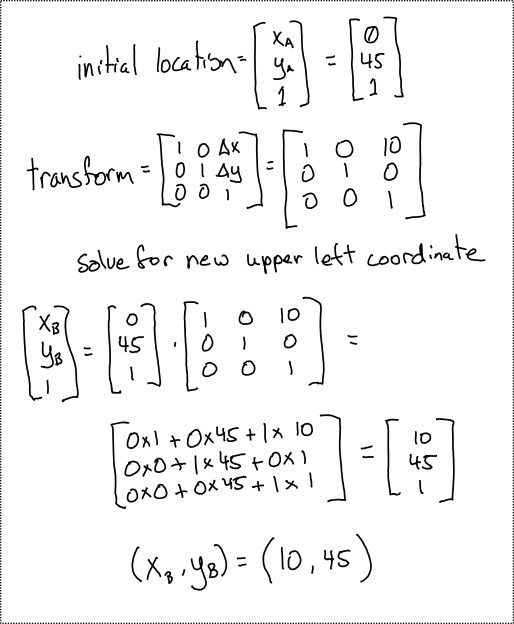 initial location = [x_A y_A 1] = [0 45 1]
transform = [1 0 Δx; 0 1 Δy; 0 0 1] = [1 0 10; 0 1 0; 0 0 1]
solve for new upper left coordinate
[x_B y_B 1] = [0 45 1] · [1 0 10; 0 1 0; 0 0 1] =
[0x1 + 0x45 + 1x10; 0x0 + 1x45 + 0x1; 0x0 + 0x45 + 1x1] = [10 45 1]
(x_B, y_B) = (10, 45)